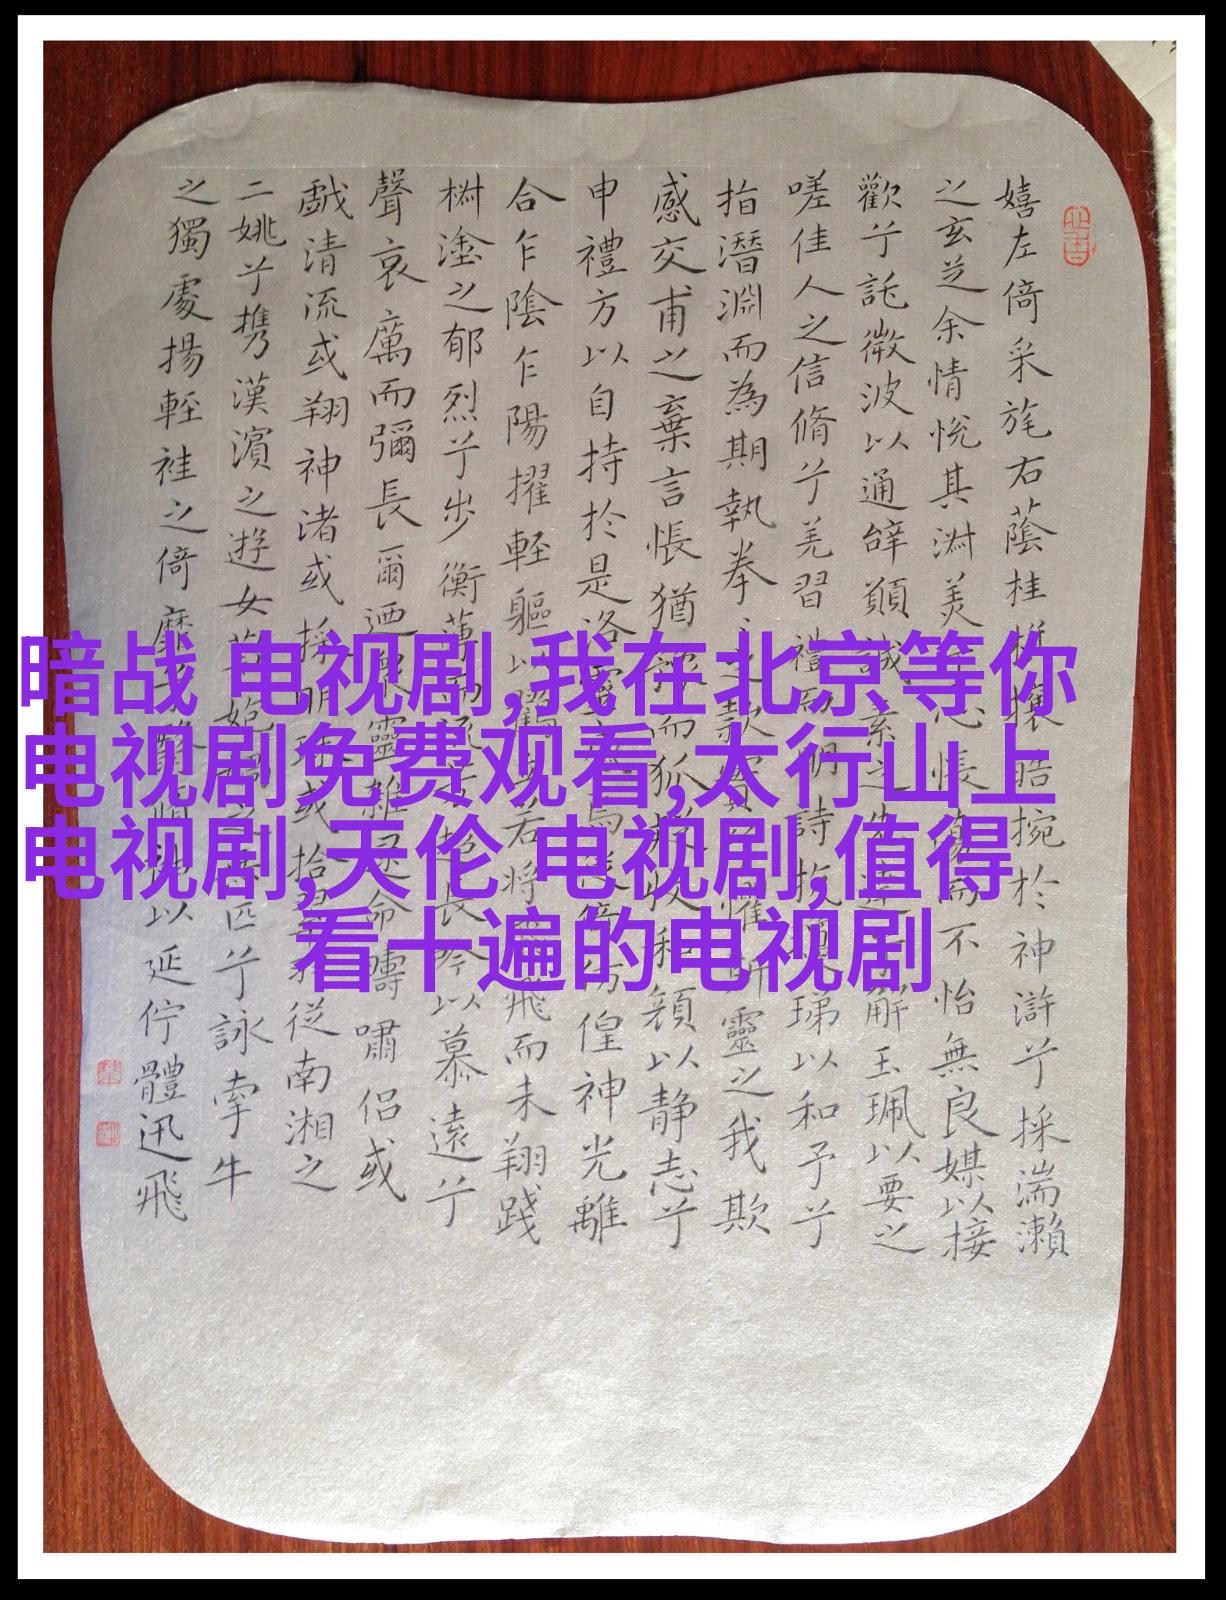 嬉左倚采旄右蔭桂旗攘皓捥於神滸兮採湍瀨
之玄芝余情悅其淑美兮心悵傷而不怡無良媒以接
歡兮託微波以通辭願誠素之先達兮解玉珮以要之
嗟佳人之信脩兮羌習禮而明詩抗瓊珶以和予兮
指潛淵而為期執拳之款實懼斯靈之我欺
感交甫之棄言悵猶而狐疑收和顏以静志兮
申禮方以自持於是洛靈焉徙倚仿偟神光離
合乍陰乍陽擢輕軀以鶴若將飛而未翔踐
樹塗之郁烈兮步衡薄而流超長吟以慕遠兮
聲哀厲而彌長爾迺眾靈雜遝命疇嘯侶或
戲清流或翔神渚或採明珠或拾翠羽從南湘之
二姚兮攜漢濱之遊女匹兮詠牽牛
之獨處揚輕袿之倚靡以延佇體迅飛
暗战 电视剧,我在北京等你
电视剧免费观看,太行山上
电视剧,天伦 电视剧,值得
看十遍的电视剧